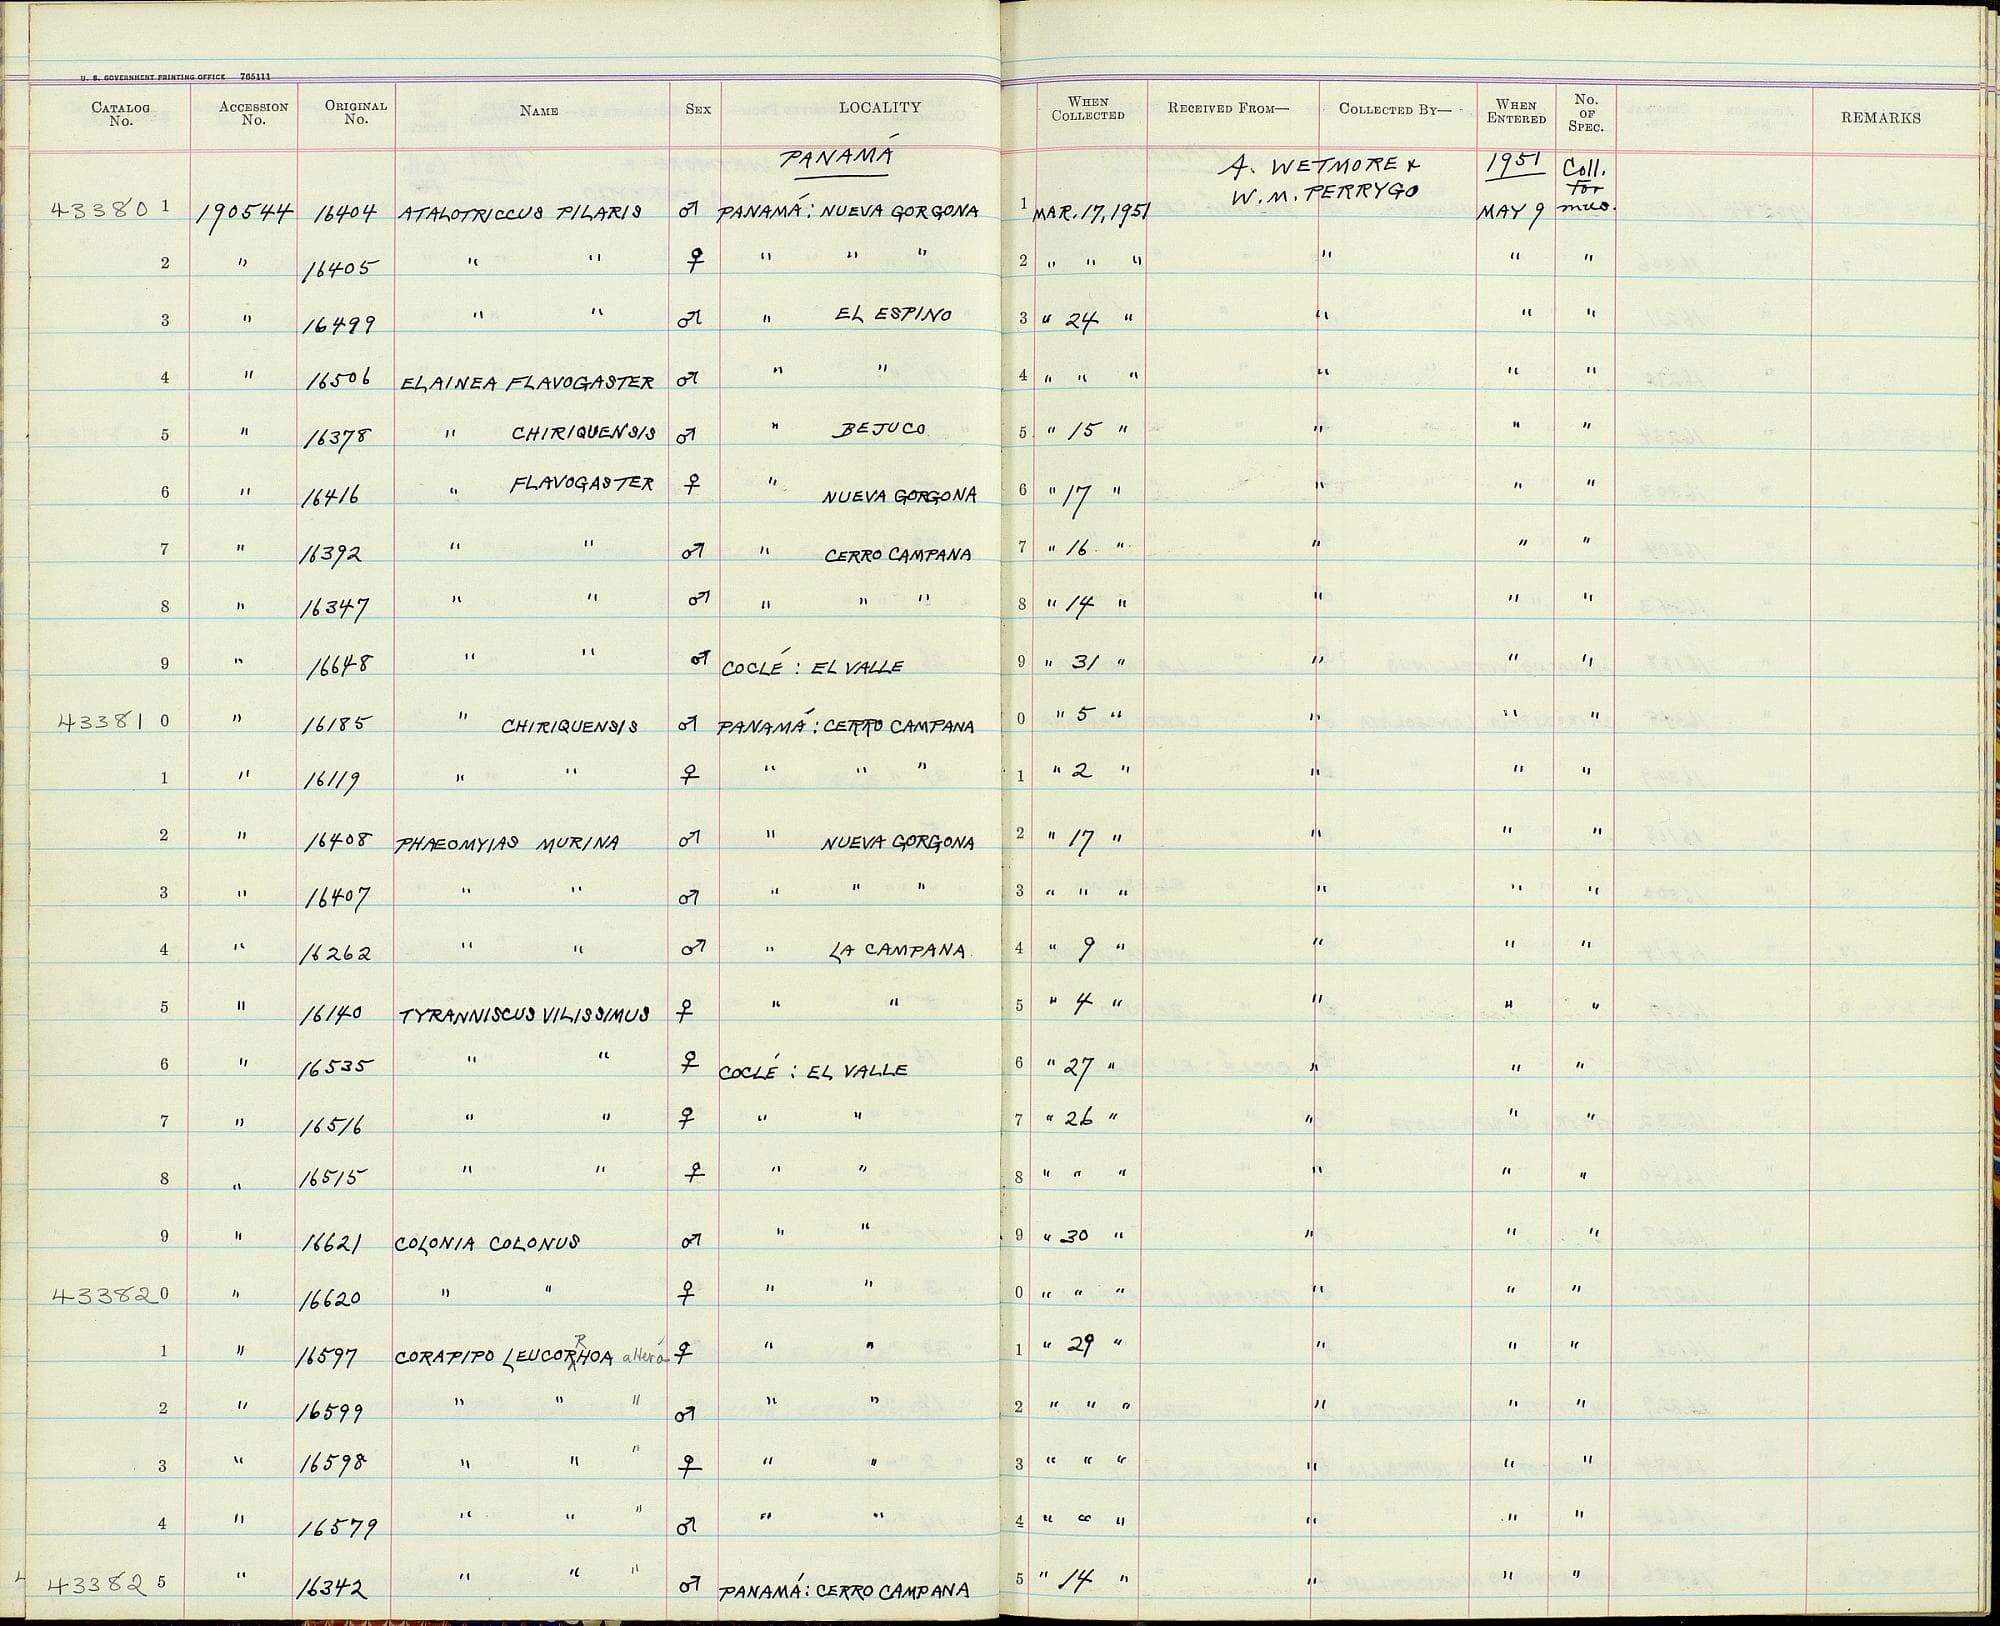 U. S. GOVERNMENT PRINTING OFFICE 765111
CATALOG No. ACCESSION No. ORIGINAL No. NAME SEX LOCALITY WHEN COLLECTED RECEIVED FROM— COLLECTED BY— WHEN ENTERED No. OF SPEC. REMARKS
PANAMÁ A. WETMORE & W.M. PERRYGO 1951 Coll. for mus.
43380 1 190544 16404 ATALOTRICCUS PILARIS ♂ PANAMÁ: NUEVA GORGONA 1 MAR. 17, 1951 MAY 9
2 " 16405 " " ♀ " " " 2 " " " " " "
3 " 16499 " " ♂ " EL ESPINO 3 " 24 " " " "
4 " 16506 ELAINEA FLAVOGASTER ♂ " " 4 " " " " " "
5 " 16378 " CHIRIQUENSIS ♂ " BEJUCO 5 " 15 " " " "
6 " 16416 " FLAVOGASTER ♀ " NUEVA GORGONA 6 " 17 " " " "
7 " 16392 " " ♂ " CERRO CAMPANA 7 " 16 " " " "
8 " 16347 " " ♂ " " " 8 " 14 " " " "
9 " 16648 " " ♂ COCLÉ: EL VALLE 9 " 31 " " " "
43381 0 " 16185 " CHIRIQUENSIS ♂ PANAMÁ: CERRO CAMPANA 0 " 5 " " " "
1 " 16119 " " ♀ " " " 1 " 2 " " " "
2 " 16408 PHAEOMYIAS MURINA ♂ " NUEVA GORGONA 2 " 17 " " " "
3 " 16407 " " ♂ " " " 3 " " " " " "
4 " 16262 " " ♂ " LA CAMPANA 4 " 9 " " " "
5 " 16140 TYRANNISCUS VILISSIMUS ♀ " " 5 " 4 " " " "
6 " 16535 " " ♀ COCLÉ: EL VALLE 6 " 27 " " " "
7 " 16516 " " ♀ " " 7 " 26 " " " "
8 " 16515 " " ♀ " " 8 " " " " " "
9 " 16621 COLONIA COLONUS ♂ " " 9 " 30 " " " "
43382 0 " 16620 " " ♀ " " 0 " " " " " "
1 " 16597 CORAPIPO LEUCORRHOA altera ♀ " " 1 " 29 " " " "
2 " 16599 " " " ♂ " " 2 " " " " " "
3 " 16598 " " " ♀ " " 3 " " " " " "
4 " 16579 " " " ♂ " " 4 " " " " " "
43382 5 " 16342 " " " ♂ PANAMÁ: CERRO CAMPANA 5 " 14 " " " "